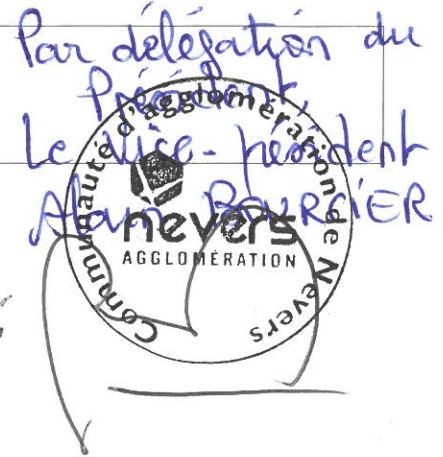 Par délégation du
Président,
Le Vice-président
Alain BOURCIER
Communauté d'agglomération de Nevers
nevers
AGGLOMÉRATION